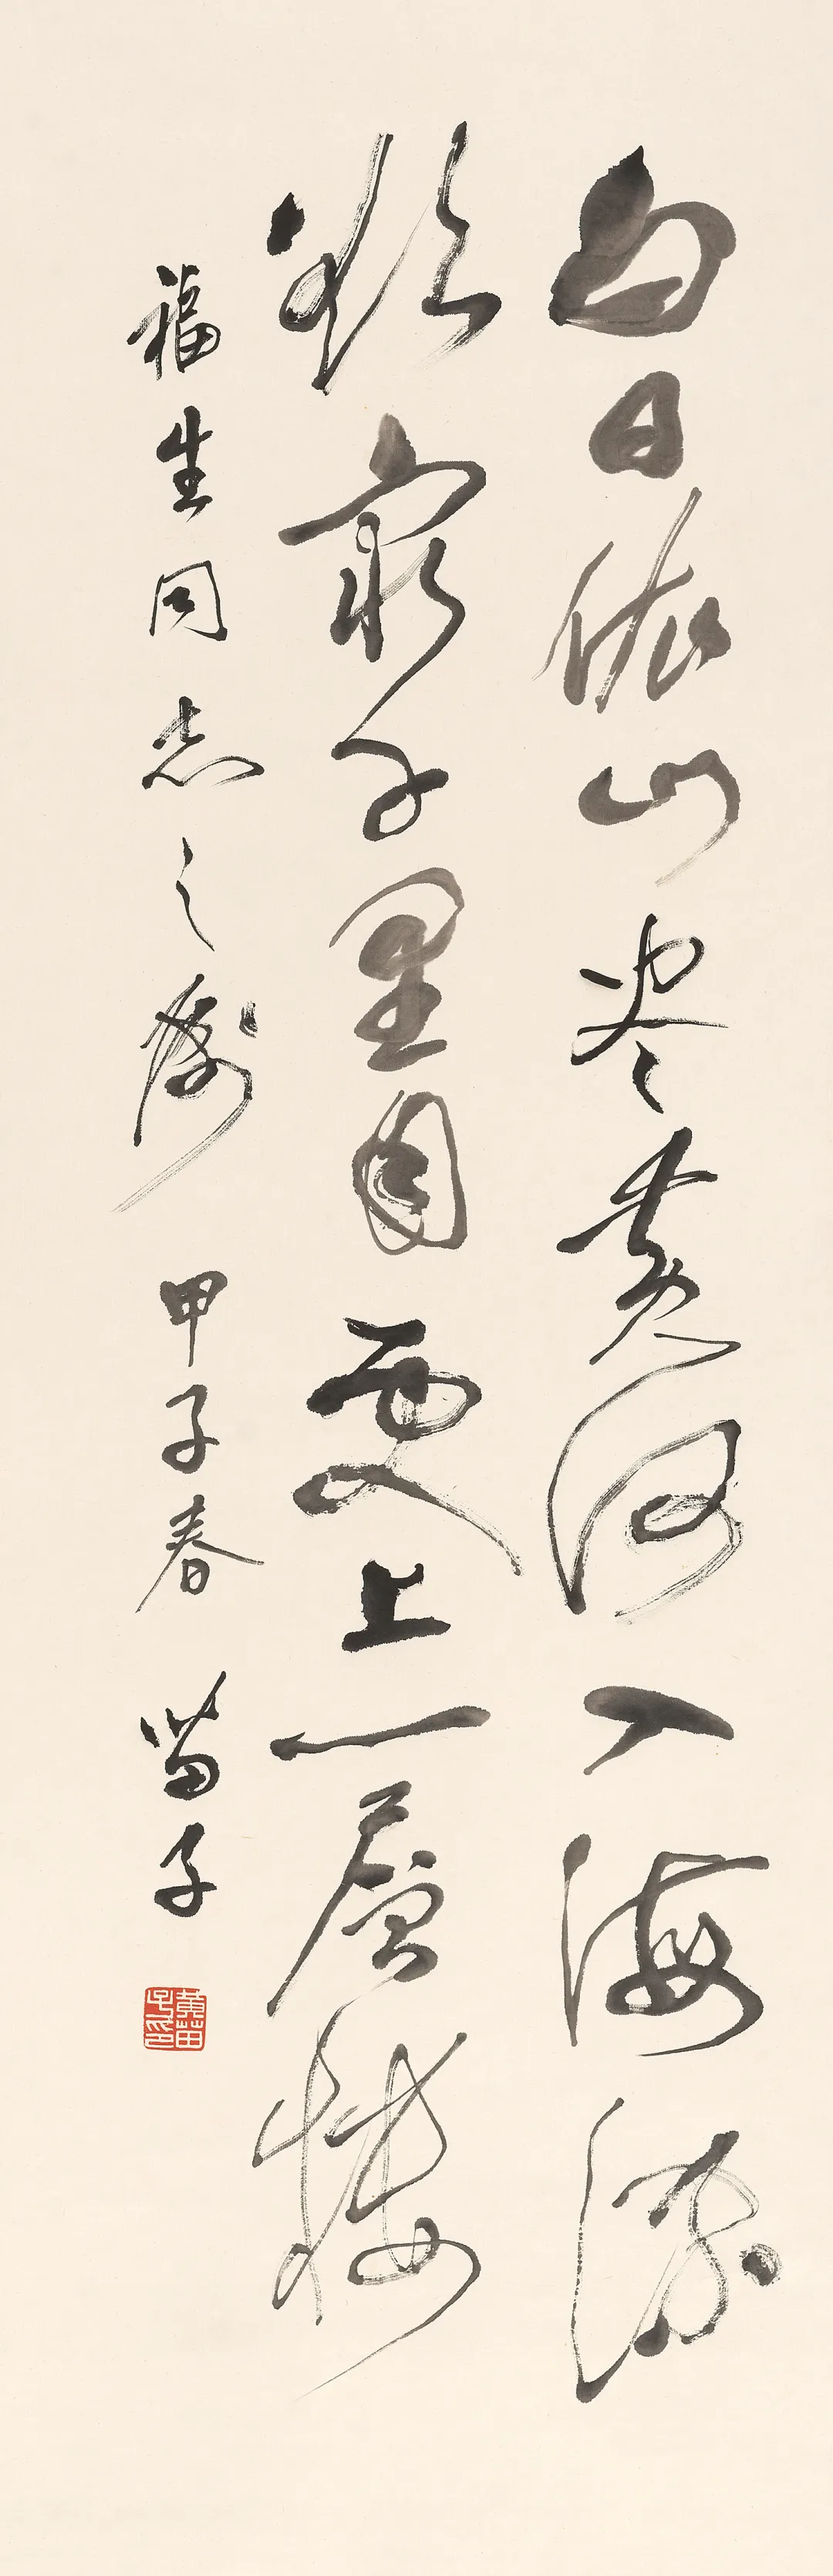 白日依山尽黄河入海流
欲穷千里目更上一层楼
福生同志之属 甲子春 苗子
黄苗子印